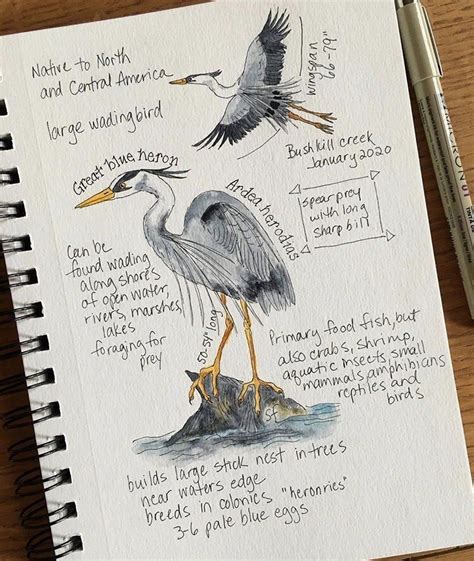 Native to North
and Central America
large wading bird
wingspan
66-79"
Bushkill creek
January 2020
Great blue heron
Ardea herodias
spear prey
with long
sharp bill
Can be
found wading
along shores
of open water,
rivers, marshes,
lakes
foraging for
prey
50-54" long
Primary food fish, but
also crabs, shrimp,
aquatic insects, small
mammals, amphibians
reptiles and
birds
sf
builds large stick nest in trees
near waters edge
breeds in colonies "heronries"
3-6 pale blue eggs
MICRON